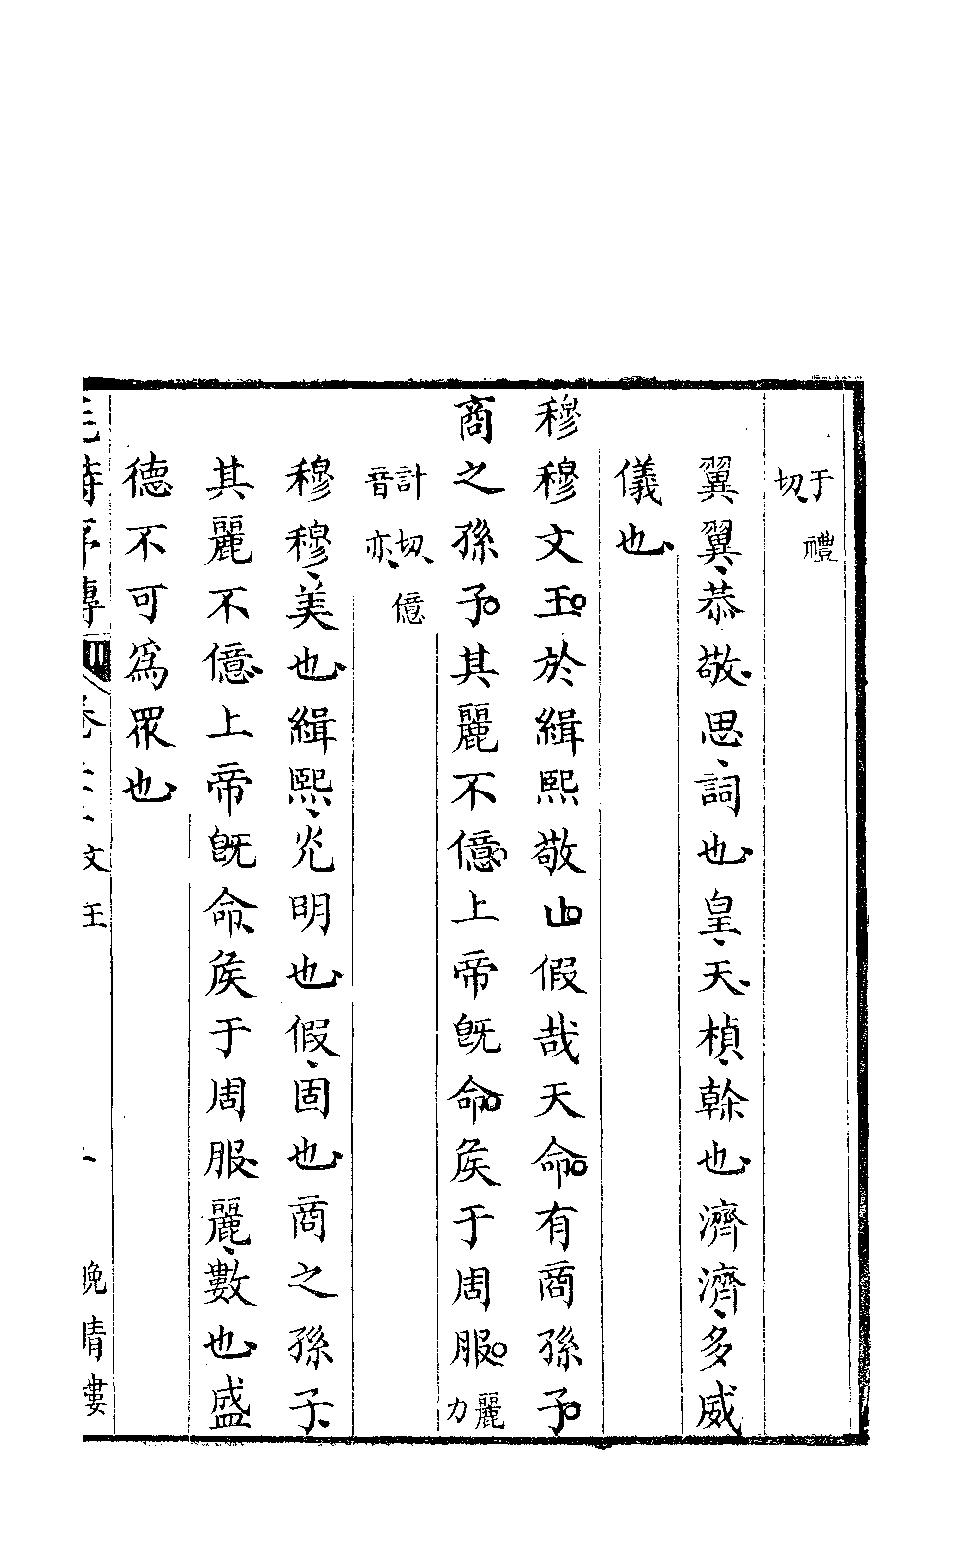 于禮
切
翼翼、恭敬、思、詞也、皇、天、楨、榦也、濟濟、多威
儀也、
穆穆文王。於、緝熙敬止。假哉天命。有商孫子。
商之孫子。其麗不億。上帝旣命。矦于周服。麗力
計切、億
音亦、
穆穆、美也、緝熙、光明也、假、固也、商之孫子、
其麗不億、上帝旣命、矦于周服、麗、數也、盛
德不可爲眾也、
文王
晚晴樓